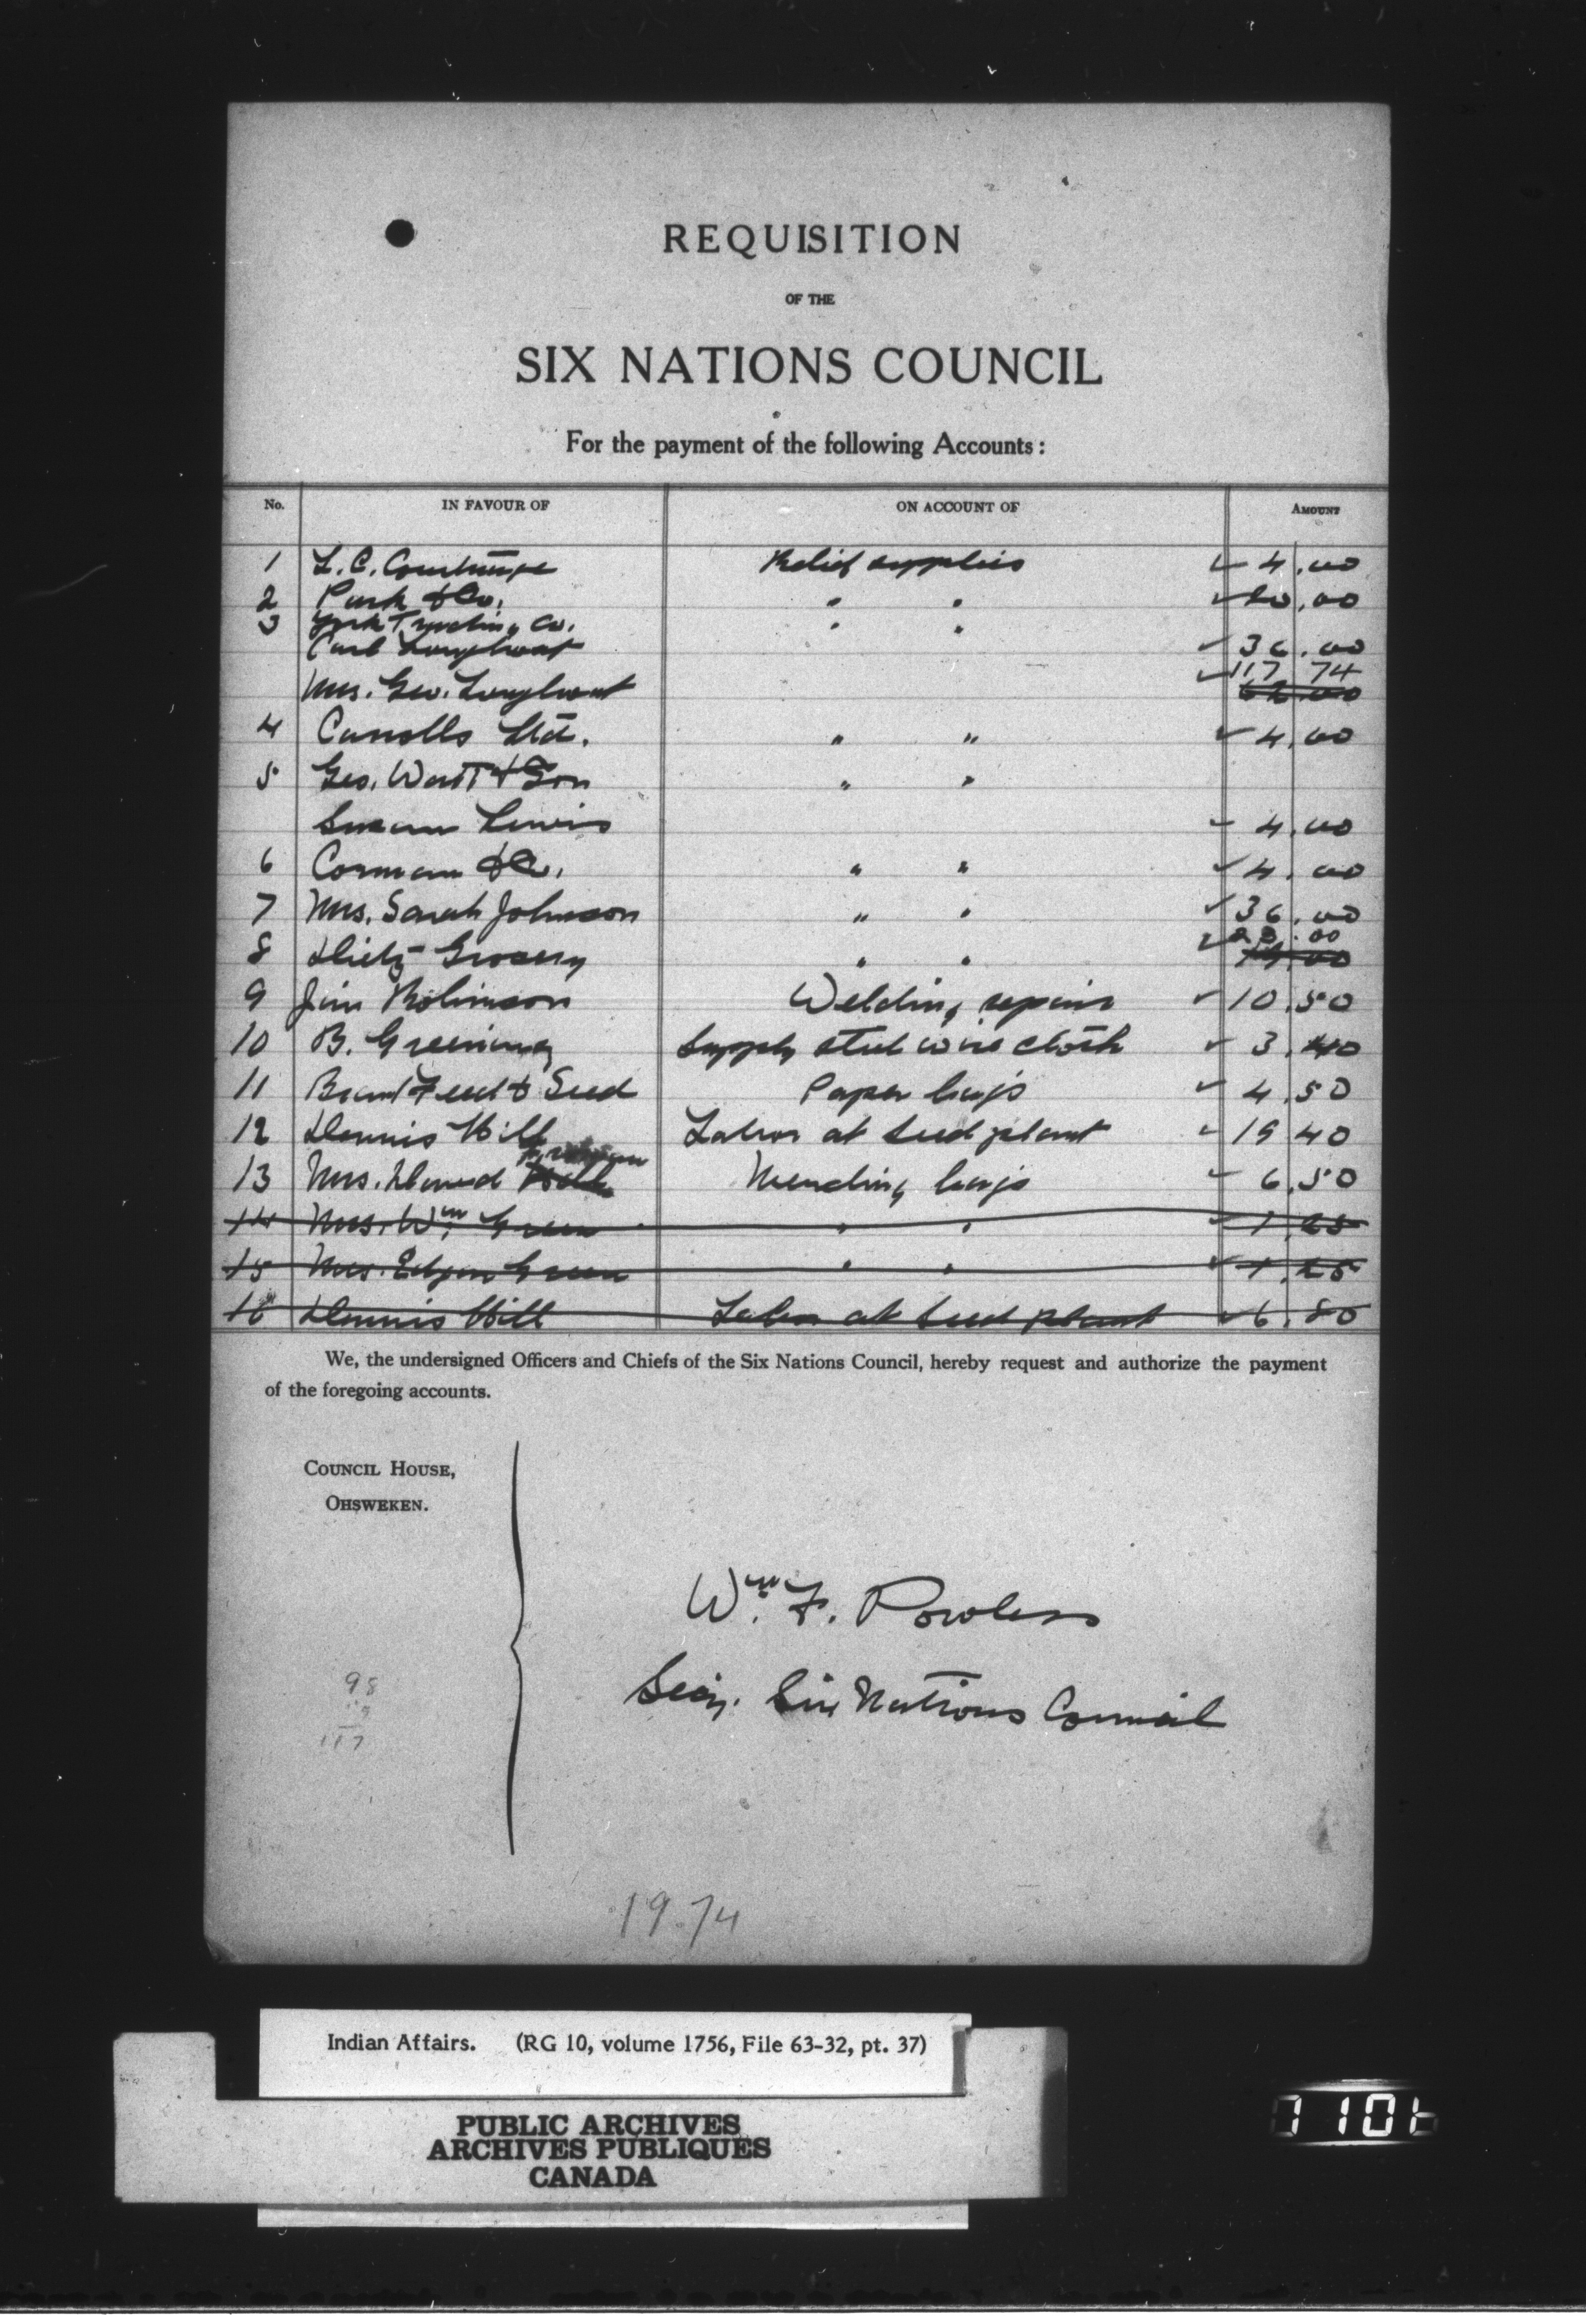 REQUISITION
OF THE
SIX NATIONS COUNCIL
For the payment of the following Accounts:
No. IN FAVOUR OF ON ACCOUNT OF AMOUNT
1 L. C. Relief supplies ✓ 4.00
2 Park & Co. " " ✓ 20.00
3 York Trading Co. " "
Carl Longboat ✓ 36.00
✓ 117 74
Mrs. Geo. Longboat
4 Carrolls Ltd. " " ✓ 4.00
5 Geo. Watt & Son " "
Susan Lewis ✓ 4.00
6 Corman & Co. " " ✓ 4.00
7 Mrs. Sarah Johnson " " ✓ 36.00
8 Dietz Grocery " " ✓ .00
9 Jim Robinson Welding repairs ✓ 10.50
10 B. Greening Supply steel wire cloth ✓ 3.40
11 Brant Feed & Seed Paper bags ✓ 4.50
12 Dennis Hill Labor at seed plant ✓ 19 40
13 Mrs. David Mending bags ✓ 6.50
14 Mrs. Wm. Green " " ✓ 1.25
15 Mrs. Edgar Green " " ✓ 1.25
16 Dennis Hill Labor at seed plant ✓ 6.80
We, the undersigned Officers and Chiefs of the Six Nations Council, hereby request and authorize the payment
of the foregoing accounts.
COUNCIL HOUSE,
OHSWEKEN.
Wm. F. Powless
Secy. Six Nations Council
98
19
117
19.74
Indian Affairs. (RG 10, volume 1756, File 63-32, pt. 37)
PUBLIC ARCHIVES
ARCHIVES PUBLIQUES
CANADA